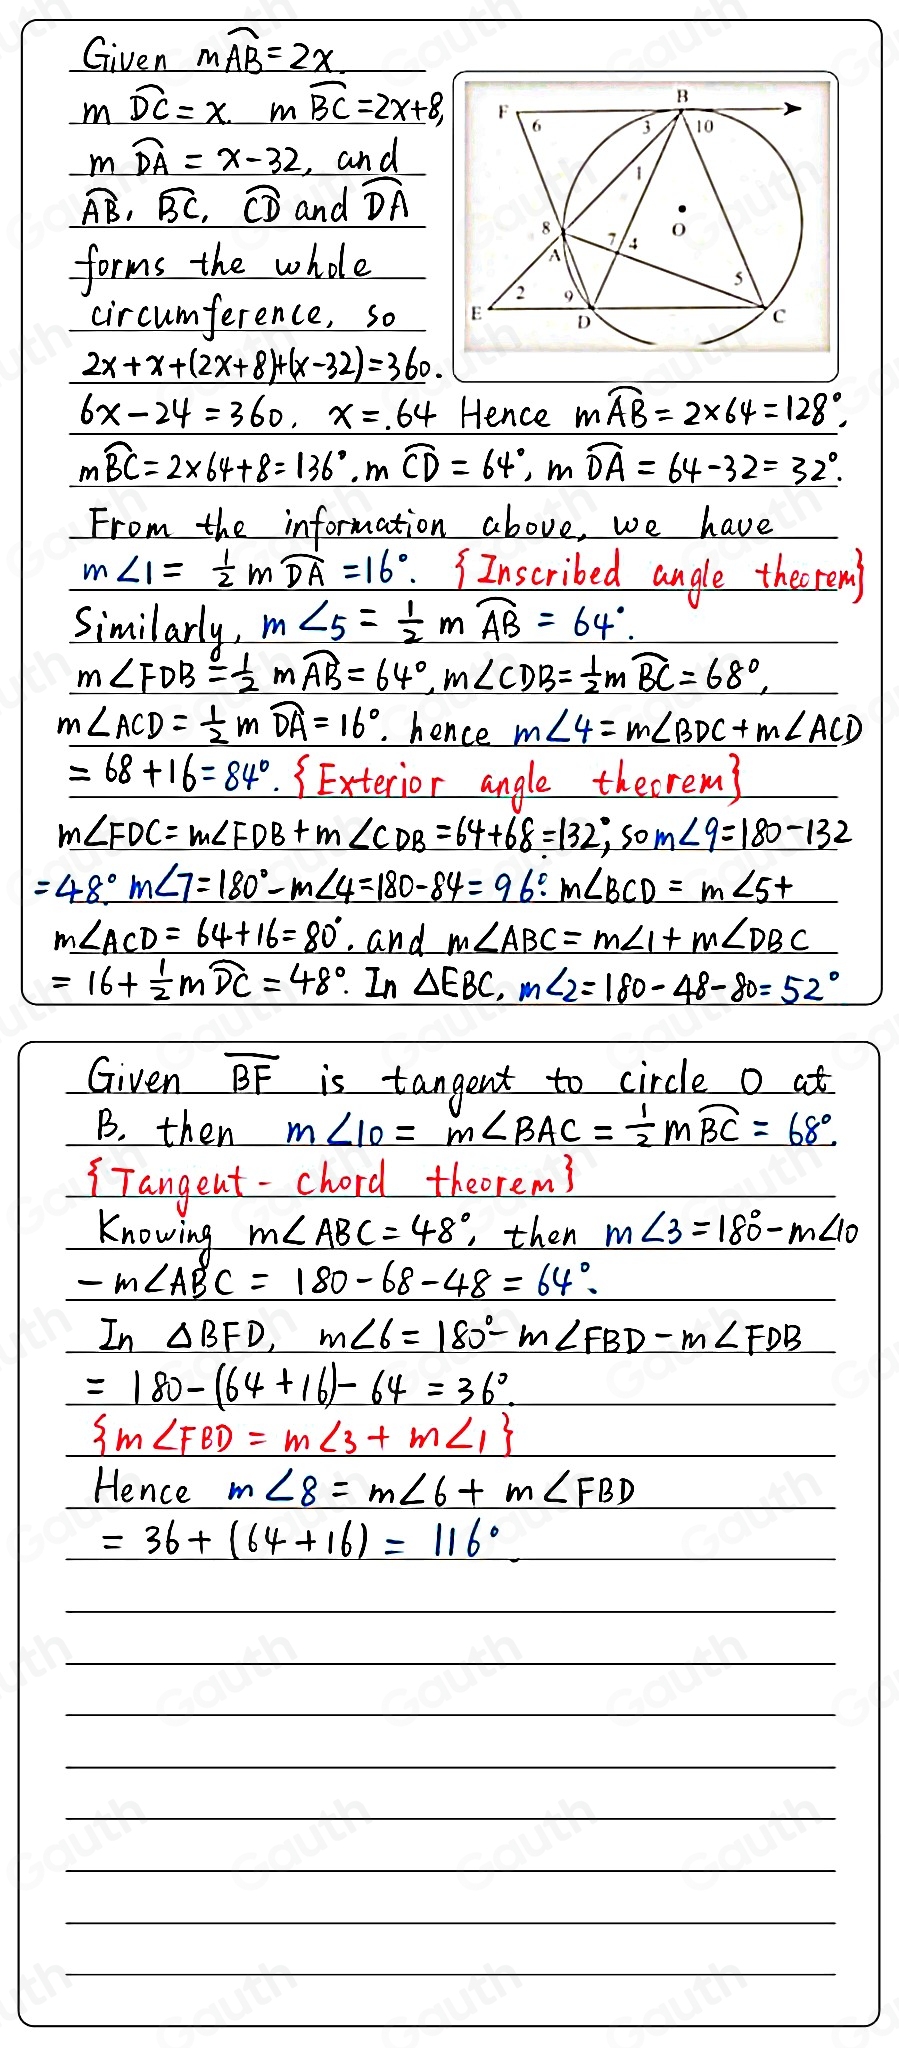 Given mAB = 2x.
m DC = x. m BC = 2x+8,
m DA = x-32, and
AB, BC, CD and DA
forms the whole
circumference, so
2x+x+(2x+8)+(x-32)=360.
F
6
3
B
10
1
8
A
7
4
O
5
E
2
9
D
C
6x-24=360, x=.64 Hence mAB=2×64=128°,
mBC=2×64+8=136°. m CD=64°, m DA=64-32=32°.
From the information above, we have
m∠1= 1/2 m DA =16°. {Inscribed angle theorem}
Similarly, m∠5 = 1/2 m AB = 64°.
m∠FDB = 1/2 mAB = 64°, m∠CDB = 1/2 mBC = 68°,
m∠ACD = 1/2 m DA = 16°. hence m∠4 = m∠BDC + m∠ACD
= 68+16 = 84°. {Exterior angle theorem}
m∠FDC = m∠FDB + m∠CDB = 64+68 = 132°, so m∠9 = 180-132
= 48°. m∠7 = 180°-m∠4 = 180-84 = 96°. m∠BCD = m∠5+
m∠ACD = 64+16 = 80°. and m∠ABC = m∠1 + m∠DBC
= 16+ 1/2 mDC = 48°. In △EBC, m∠2 = 180-48-80 = 52°
Given BF is tangent to circle O at
B. then m∠10 = m∠BAC = 1/2 mBC = 68°.
{Tangent-chord theorem}
Knowing m∠ABC = 48°, then m∠3 = 180°-m∠10
-m∠ABC = 180-68-48 = 64°.
In △BFD, m∠6 = 180°-m∠FBD-m∠FDB
= 180-(64+16)-64 = 36°.
{m∠FBD = m∠3+m∠1}
Hence m∠8 = m∠6 + m∠FBD
= 36+(64+16) = 116°
Gauth